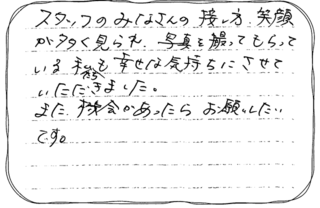 スタッフのみなさんの接し方、笑顔
が多く見られ、写真を撮ってもらって
いる私たちも幸せな気持ちにさせて
いただきました。
また機会があったらお願いしたい
です。